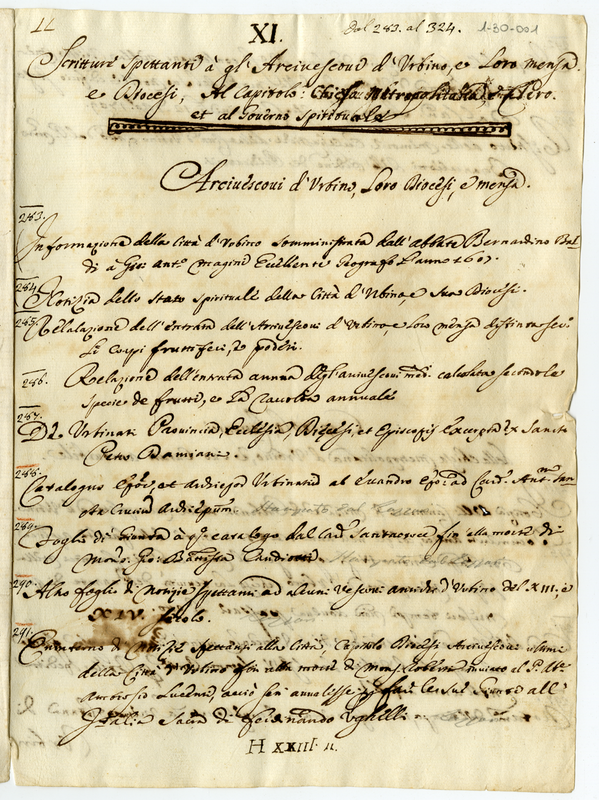 11
XI.
Dal 283. al 324.
1-30-001
Scritture Spettanti à gl' Arciuescoui d' Vrbino, e Loro mensa
e Diocesi, Al Capitolo: Chiesa Metropolitana, e Clero.
et al Gouerno Spirituale
Arciuescoui d' Vrbino, Loro Diocesi, e mensa.
283.
Informazione della Città d' Vrbino somministrata dall' Abbate Bernardino Bal=
di à Gio: Ant.o Magini Eccellente Geografo l'anno 160
284.
Notizia dello Stato Spirituale della Città d' Vrbino, e Sua Diocesi.
285.
Relalazione dell' entrata dell' Arciuescoui d' Vrbino, e Loro mensa distinta
Li Corpi fruttiferi, e poderi.
286. Relazione dell' entrata annua degl' arciuescoui med. calcolata secondo le
specie de frutti, e La raccolta annuale
287.
De Vrbinati Prouincia, Ecclesia, Diocesi, et Episcopis excerpta ex Sancto
Petro Damiani.
288.
Catalogus et Vrbinatis ab Euandro ad Card. Ant.m San=
289.
Foglio di Giunta à q.o catalogo dal Card. Santacroce fin alla morte di
Mons. Gio: Battista Candiotti.
290
Altro foglio di notizie spettanti ad alcuni Vescoui antichi d' Vrbino del XIII, e
XIV. secolo.
291.
Quinterno di Notizie Spettanti alla Città, Capitolo Diocesi Arciuescoui
della Città d' Vrbino fin alla morte di Mons. inuiato al P. Ab.
Ambrosio acciò
Italia Sacra di Ferdinando Vghelli
H XXIII. 11.